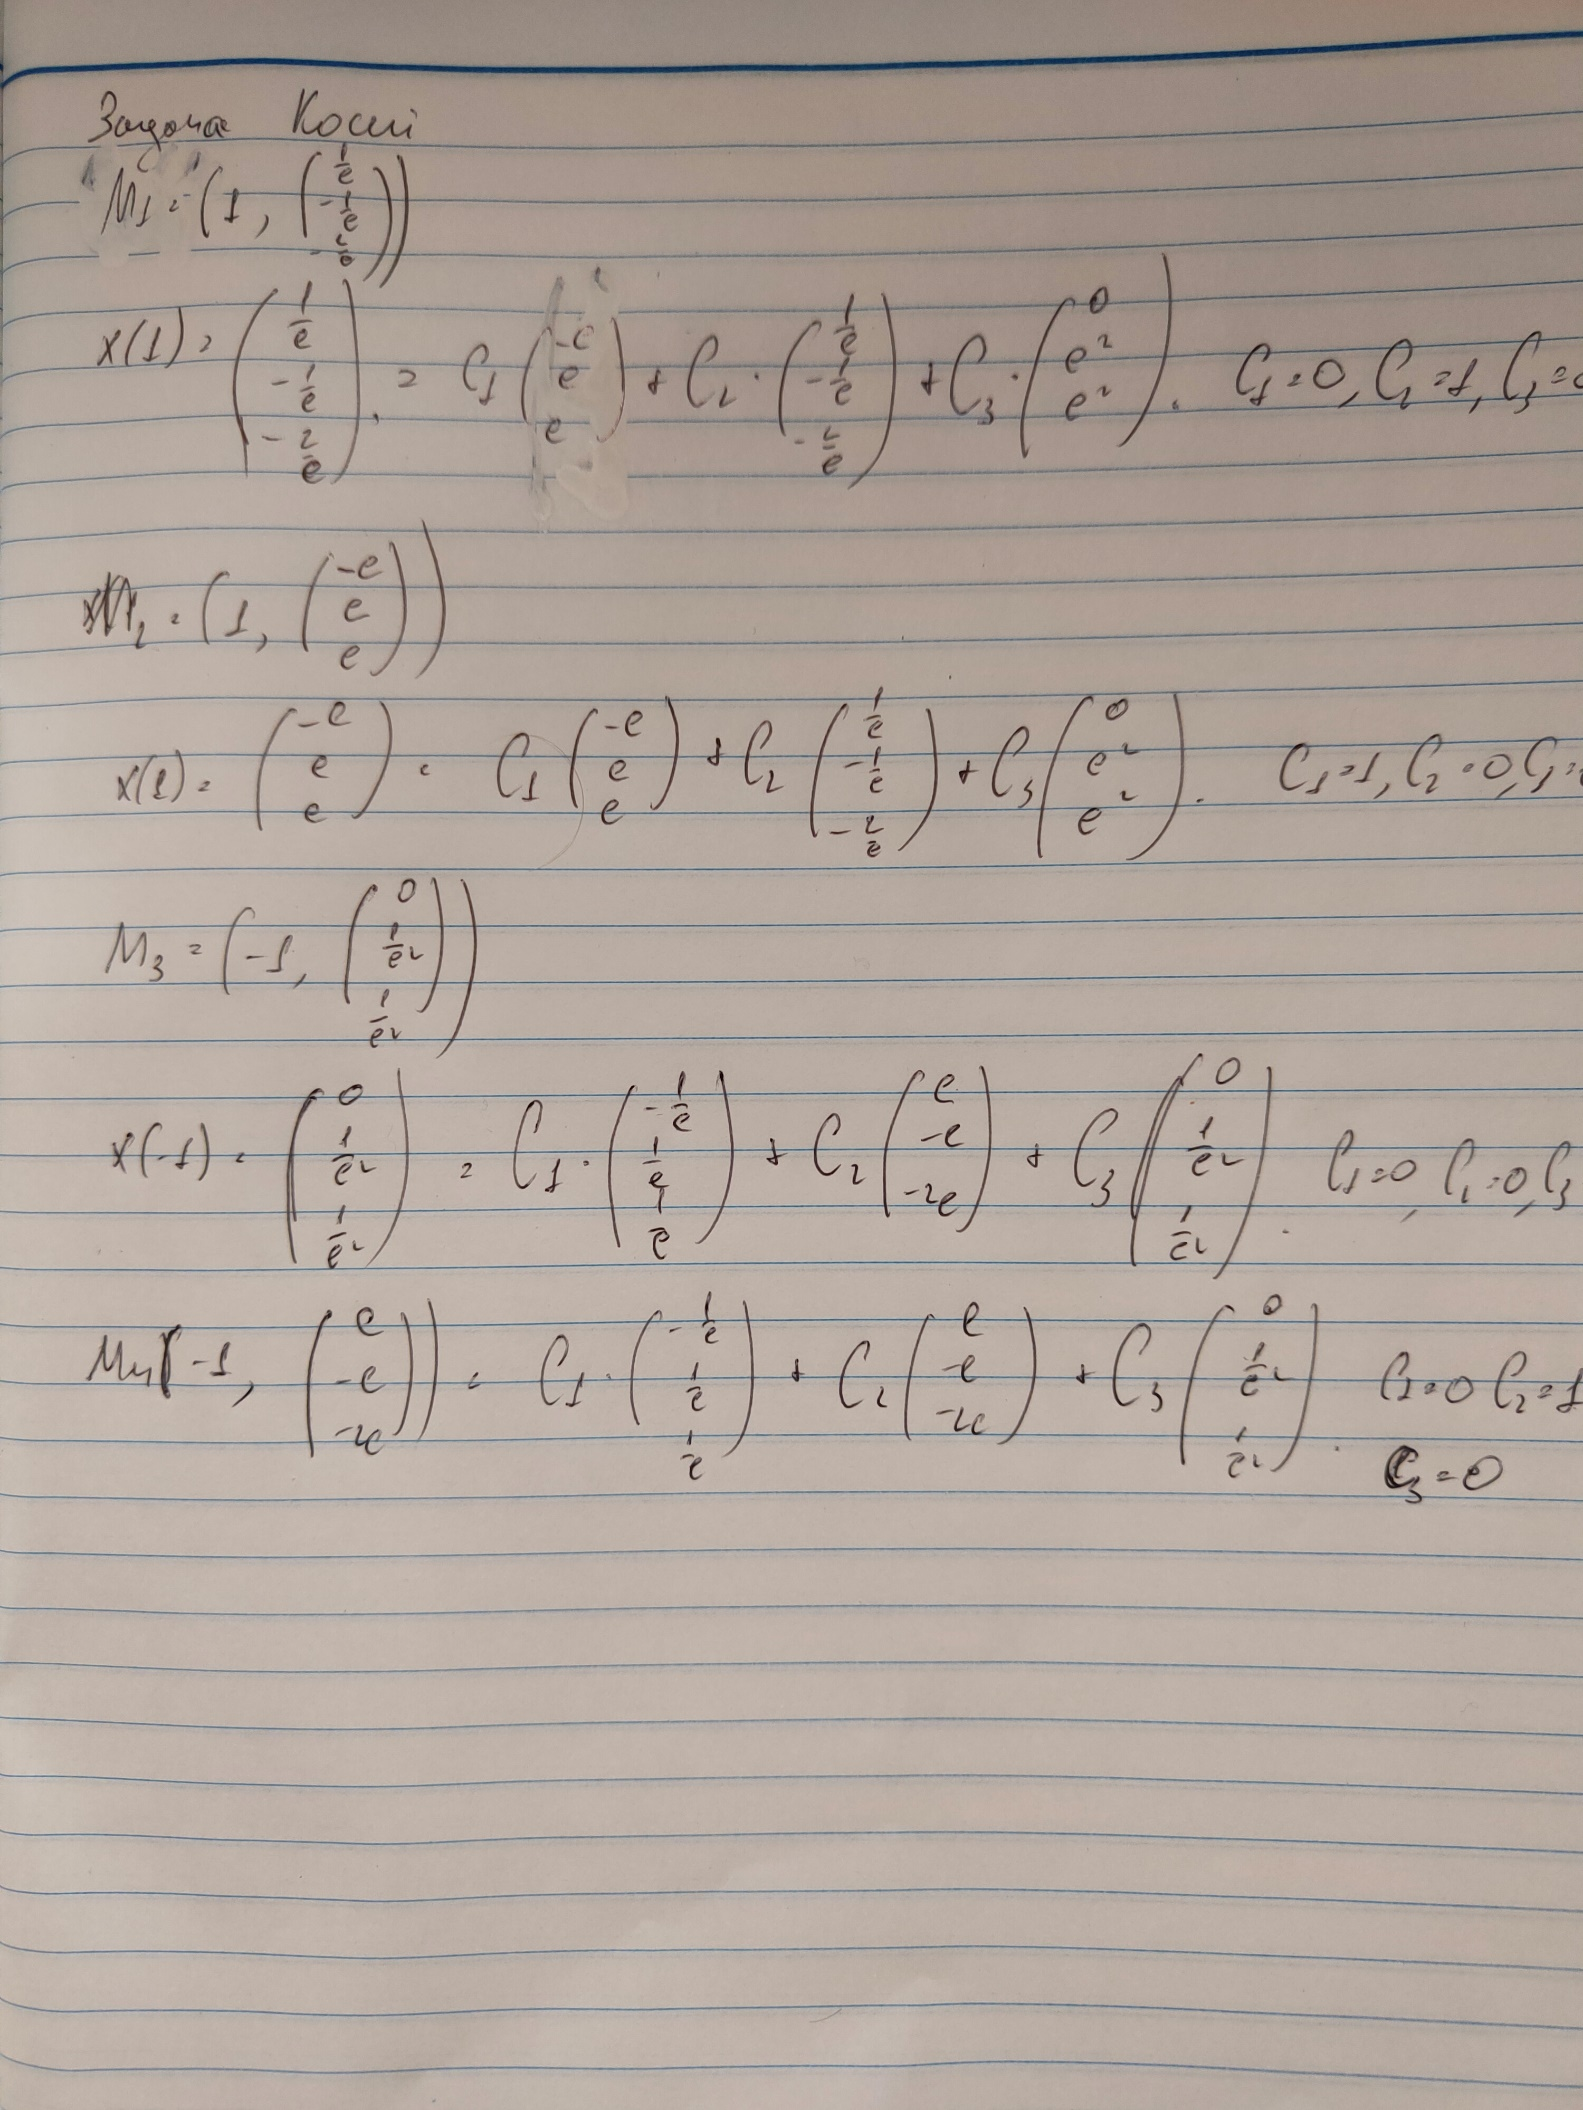 Задача Коші
M₁ = (1, (1/e; -1/e; -2/e))
x(1) = (1/e; -1/e; -2/e) = C₁(-e; e; e) + C₂·(1/e; -1/e; -2/e) + C₃·(0; e²; e²). C₁=0, C₂=1, C₃=
M₂ = (1, (-e; e; e))
x(1) = (-e; e; e) = C₁(-e; e; e) + C₂(1/e; -1/e; -2/e) + C₃(0; e²; e²). C₁=1, C₂=0, C₃=
M₃ = (-1, (0; 1/e²; 1/e²))
x(-1) = (0; 1/e²; 1/e²) = C₁·(-1/e; 1/e; 1/e) + C₂(e; -e; -2e) + C₃(0; 1/e²; 1/e²). C₁=0, C₂=0, C₃
M₄(-1, (e; -e; -2e)) = C₁·(-1/e; 1/e; 1/e) + C₂(e; -e; -2e) + C₃(0; 1/e²; 1/e²). C₁=0 C₂=1
C₃=0